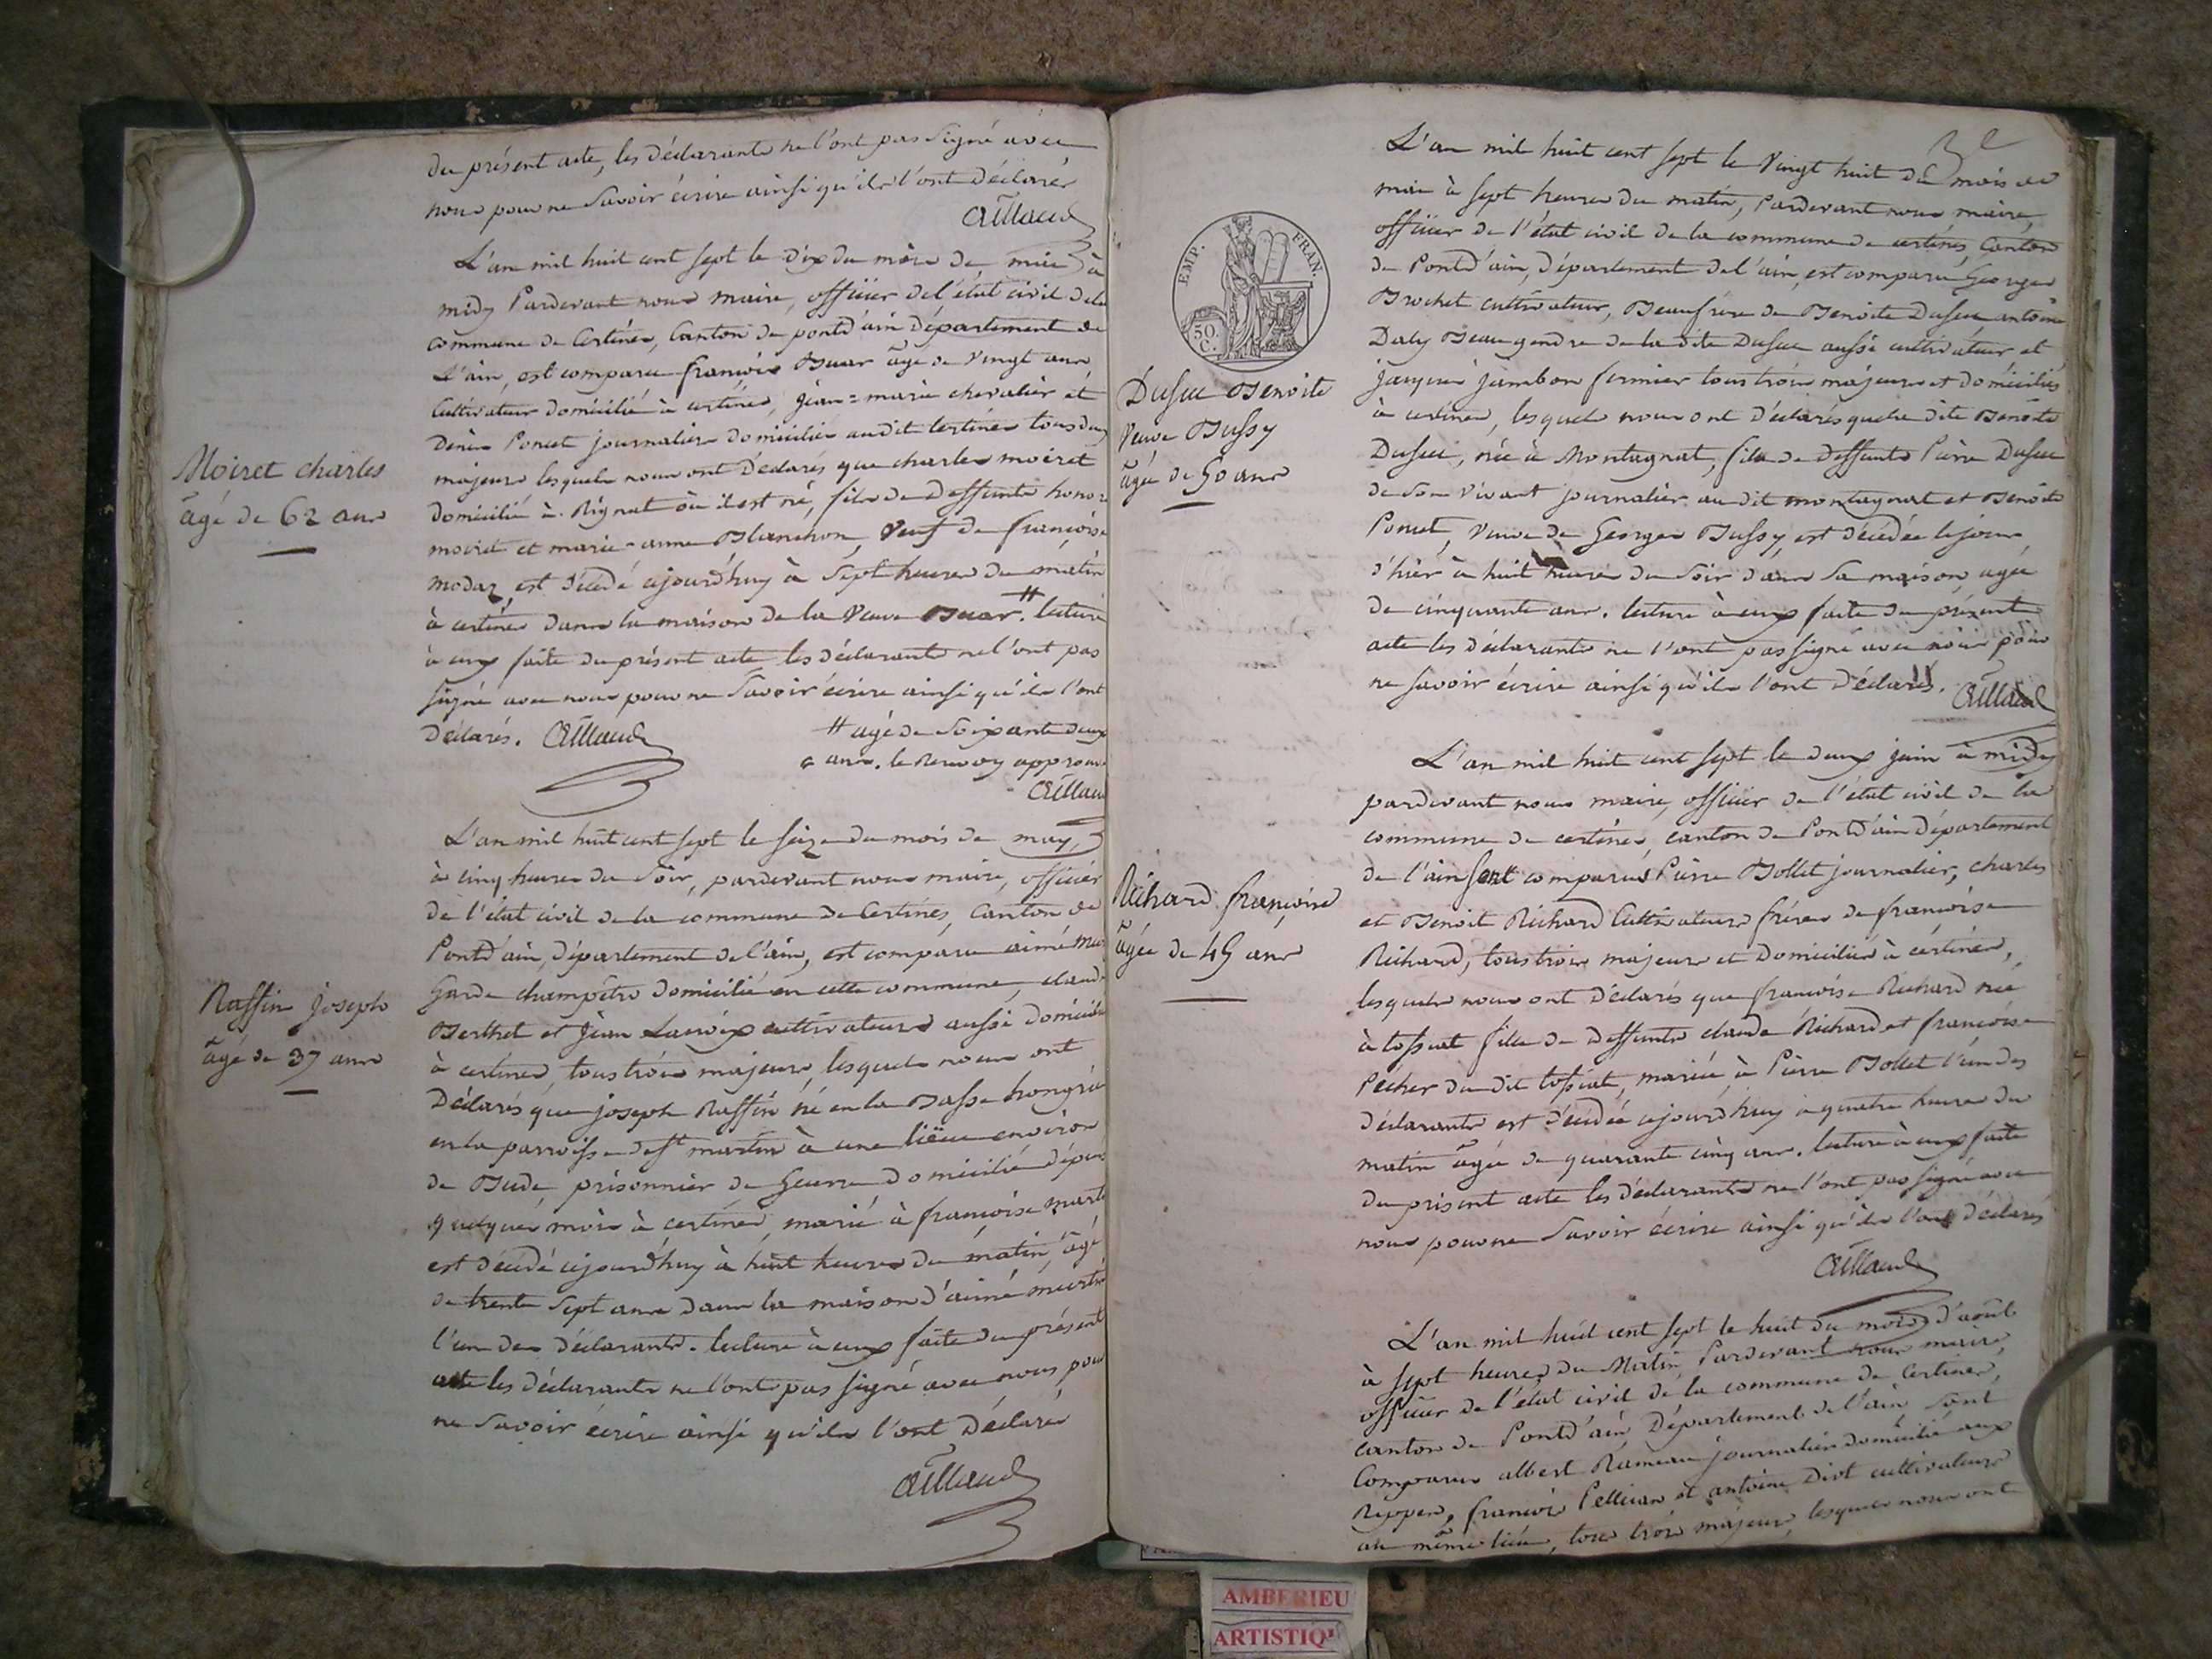 du présent acte, les déclarants ne l'ont pas signé avec
nous pour ne savoir écrire ainsi qu'ils l'ont déclarés
Aillaud
L'an mil huit cent sept le dix du mois de mai à
midy Pardevant nous maire, officier de l'état civil de la
commune de Certines, Canton de pontd'ain département de
L'ain, est comparu françois Buar âgé de vingt ans
Cultivateur domicilié à certines, jean=marie chevalier et
Denis Poncet journaliers domiciliés audit Certines tous deux
majeurs lesquels nous ont déclarés que charles moiret
domicilié à Rignat où il est né, fils de deffunts honoré
moiret et marie-anne Blanchon, veuf de françoise
modaz, est décédé cejourd'huy à sept heures du matin
à certines dans la maison de la veuve Buar. # lecture
à eux faite du présent acte les déclarants ne l'ont pas
signé avec nous pour ne savoir écrire ainsi qu'ils l'ont
déclarés. Aillaud
# agé de soixante deux
ans. le Renvoy approuvé
Aillaud
Moiret charles
âgé de 62 ans
L'an mil huit cent sept le seize du mois de may
à cinq heures du soir, pardevant nous maire, officier
de l'état civil de la commune de Certines, Canton de
Pontd'ain, département de l'ain, est comparu aimé
Garde champêtre domicilié en cette commune, claude
Berthet et jean Lacroix cultivateurs aussi domiciliés
à certines, tous trois majeurs, lesquels nous ont
Déclarés que joseph Raffin né en la Basse hongrie
en la parroisse de st martin à une liëue environ
de Bude, prisonnier de Guerre domicilié depuis
quelques mois à certines, marié à françoise
est décédé cejourd'huy à huit heures du matin âgé
de trente sept ans dans la maison d'aimé
l'un des déclarants. lecture à eux faite du présent
acte les déclarants ne l'ont pas signé avec nous pour
ne savoir écrire ainsi qu'ils l'ont déclaré
Aillaud
Raffin joseph
âgé de 37 ans
L'an mil huit cent sept le vingt huit du mois de
mai à sept heures du matin, Pardevant nous maire,
officier de l'état civil de la commune de certines, Canton
de Pontd'ain, département de l'ain, est comparu Georges
Brochet cultivateur, Beaufrère de Benoite Dufeu antoine
Daly Beau gendre de la dite Dufeu aussi cultivateur et
jacques jambon fermier tous trois majeurs et domiciliés
à certines, lesquels nous ont déclarés que la dite Benoite
Dufeu, née à Montagnat, fille de deffunts Pierre Dufeu
de son vivant journalier au dit montagnat et Benoite
Poncet, veuve de Georges Bussy, est décédée le jour
d'hier à huit heures du soir dans sa maison, agée
de cinquante ans. lecture à eux faite du présent
acte les déclarants ne l'ont pas signé avec nous pour
ne savoir écrire ainsi qu'ils l'ont déclarés. Aillaud
EMP. FRAN.
50
C.
Dufeu Benoite
veuve Bussy
âgée de 50 ans
L'an mil huit cent sept le deux juin à midy
pardevant nous maire, officier de l'état civil de la
commune de certines, canton de Pontd'ain département
de l'ain sont comparus Pierre Bollet journalier, charles
et Benoit Richard Cultivateurs frères de françoise
Richard, tous trois majeurs et domiciliés à certines,
lesquels nous ont déclarés que françoise Richard née
à tossiat fille de deffunts claude Richard et françoise
Pecher du dit tossiat, mariée à Pierre Bollet l'un des
déclarants est décédée cejourd'huy à quatre heures du
matin âgée de quarante cinq ans. lecture à eux faite
du présent acte les déclarants ne l'ont pas signé avec
nous pour ne savoir écrire ainsi qu'ils l'ont déclarés
Aillaud
Richard françoise
âgée de 45 ans
L'an mil huit cent sept le huit du mois d'août
à sept heures du Matin Pardevant nous maire,
officier de l'état civil de la commune de Certines,
canton de Pontd'ain Département de l'ain sont
Comparus albert Rameau journalier domicilié aux
Rippes, francois Pellician et antoine Divt cultivateurs
au même lieu, tous trois majeurs, lesquels nous ont
AMBERIEU
ARTISTIQU